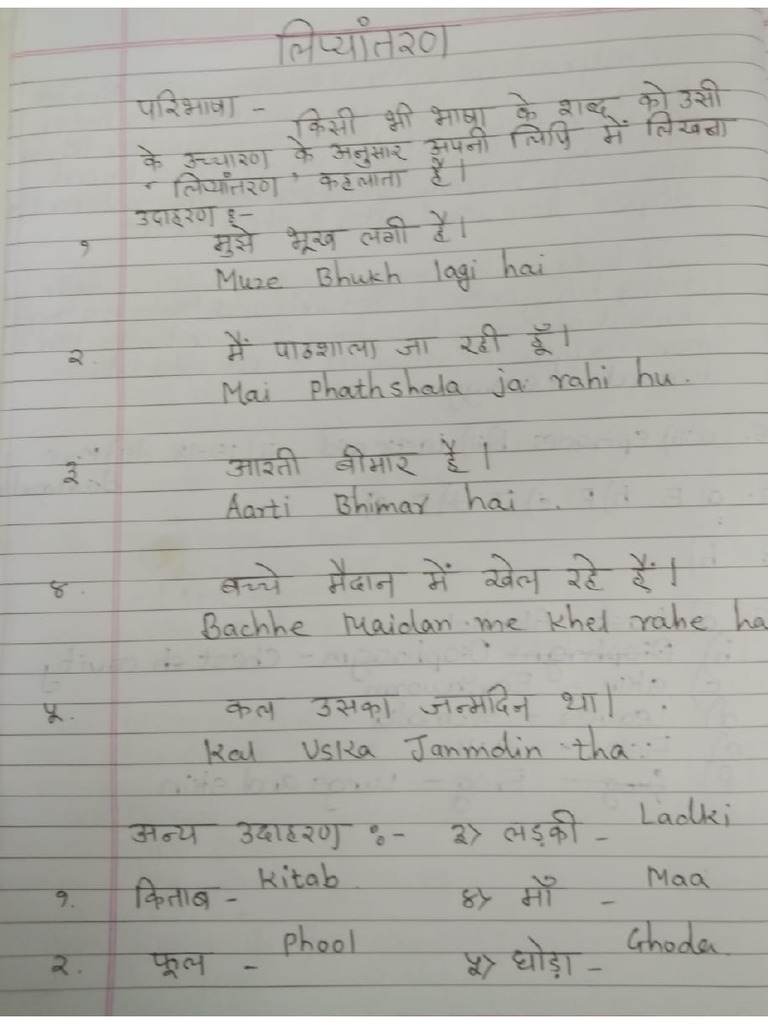 लिप्यांतरण
परिभाषा -
किसी भी भाषा के शब्द को उसी
के उच्चारण के अनुसार अपनी लिपि में लिखना
' लिप्यांतरण ' कहलाता है।
उदाहरण :-
१ मुझे भूख लगी है।
Muze Bhukh lagi hai
२. मैं पाठशाला जा रही हूँ।
Mai Phathshala ja rahi hu.
३. आरती बीमार है।
Aarti Bhimar hai.
४. बच्चे मैदान में खेल रहे हैं।
Bachhe Maidan me khel rahe ha
५. कल उसका जन्मदिन था।
Kal Uska Janmdin tha
अन्य उदाहरण :- ३> लड़की - Ladki
१. किताब - Kitab ४> माँ - Maa
२. फूल - Phool ५> घोड़ा - Ghoda